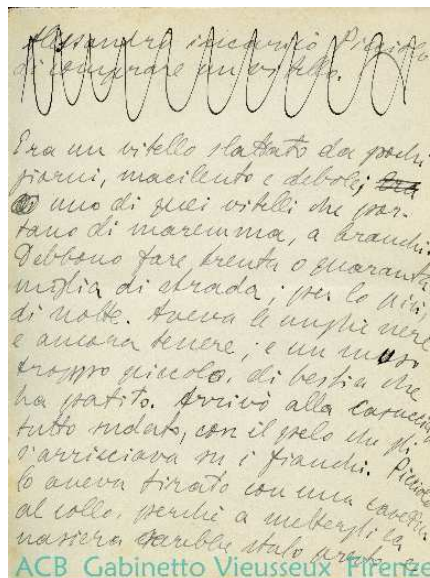 Alessandro incaricò
di comprare un vitello.
Era un vitello slattato da pochi
giorni, macilento e debole; era
uno di quei vitelli che por-
tano di maremma, a branchi.
Debbono fare trenta o quaranta
miglia di strada; per lo più,
di notte. Aveva le unghie nere
e ancora tenere; e un muso
troppo piccolo, di bestia che
ha patito. Arrivò alla casuccia
tutto sudato, con il pelo che gli
s'arricciava su i fianchi.
lo aveva tirato con una cavezza
al collo, perché a mettergli la
nasiera sarebbe stato presto, e
ACB Gabinetto Vieusseux Firenze